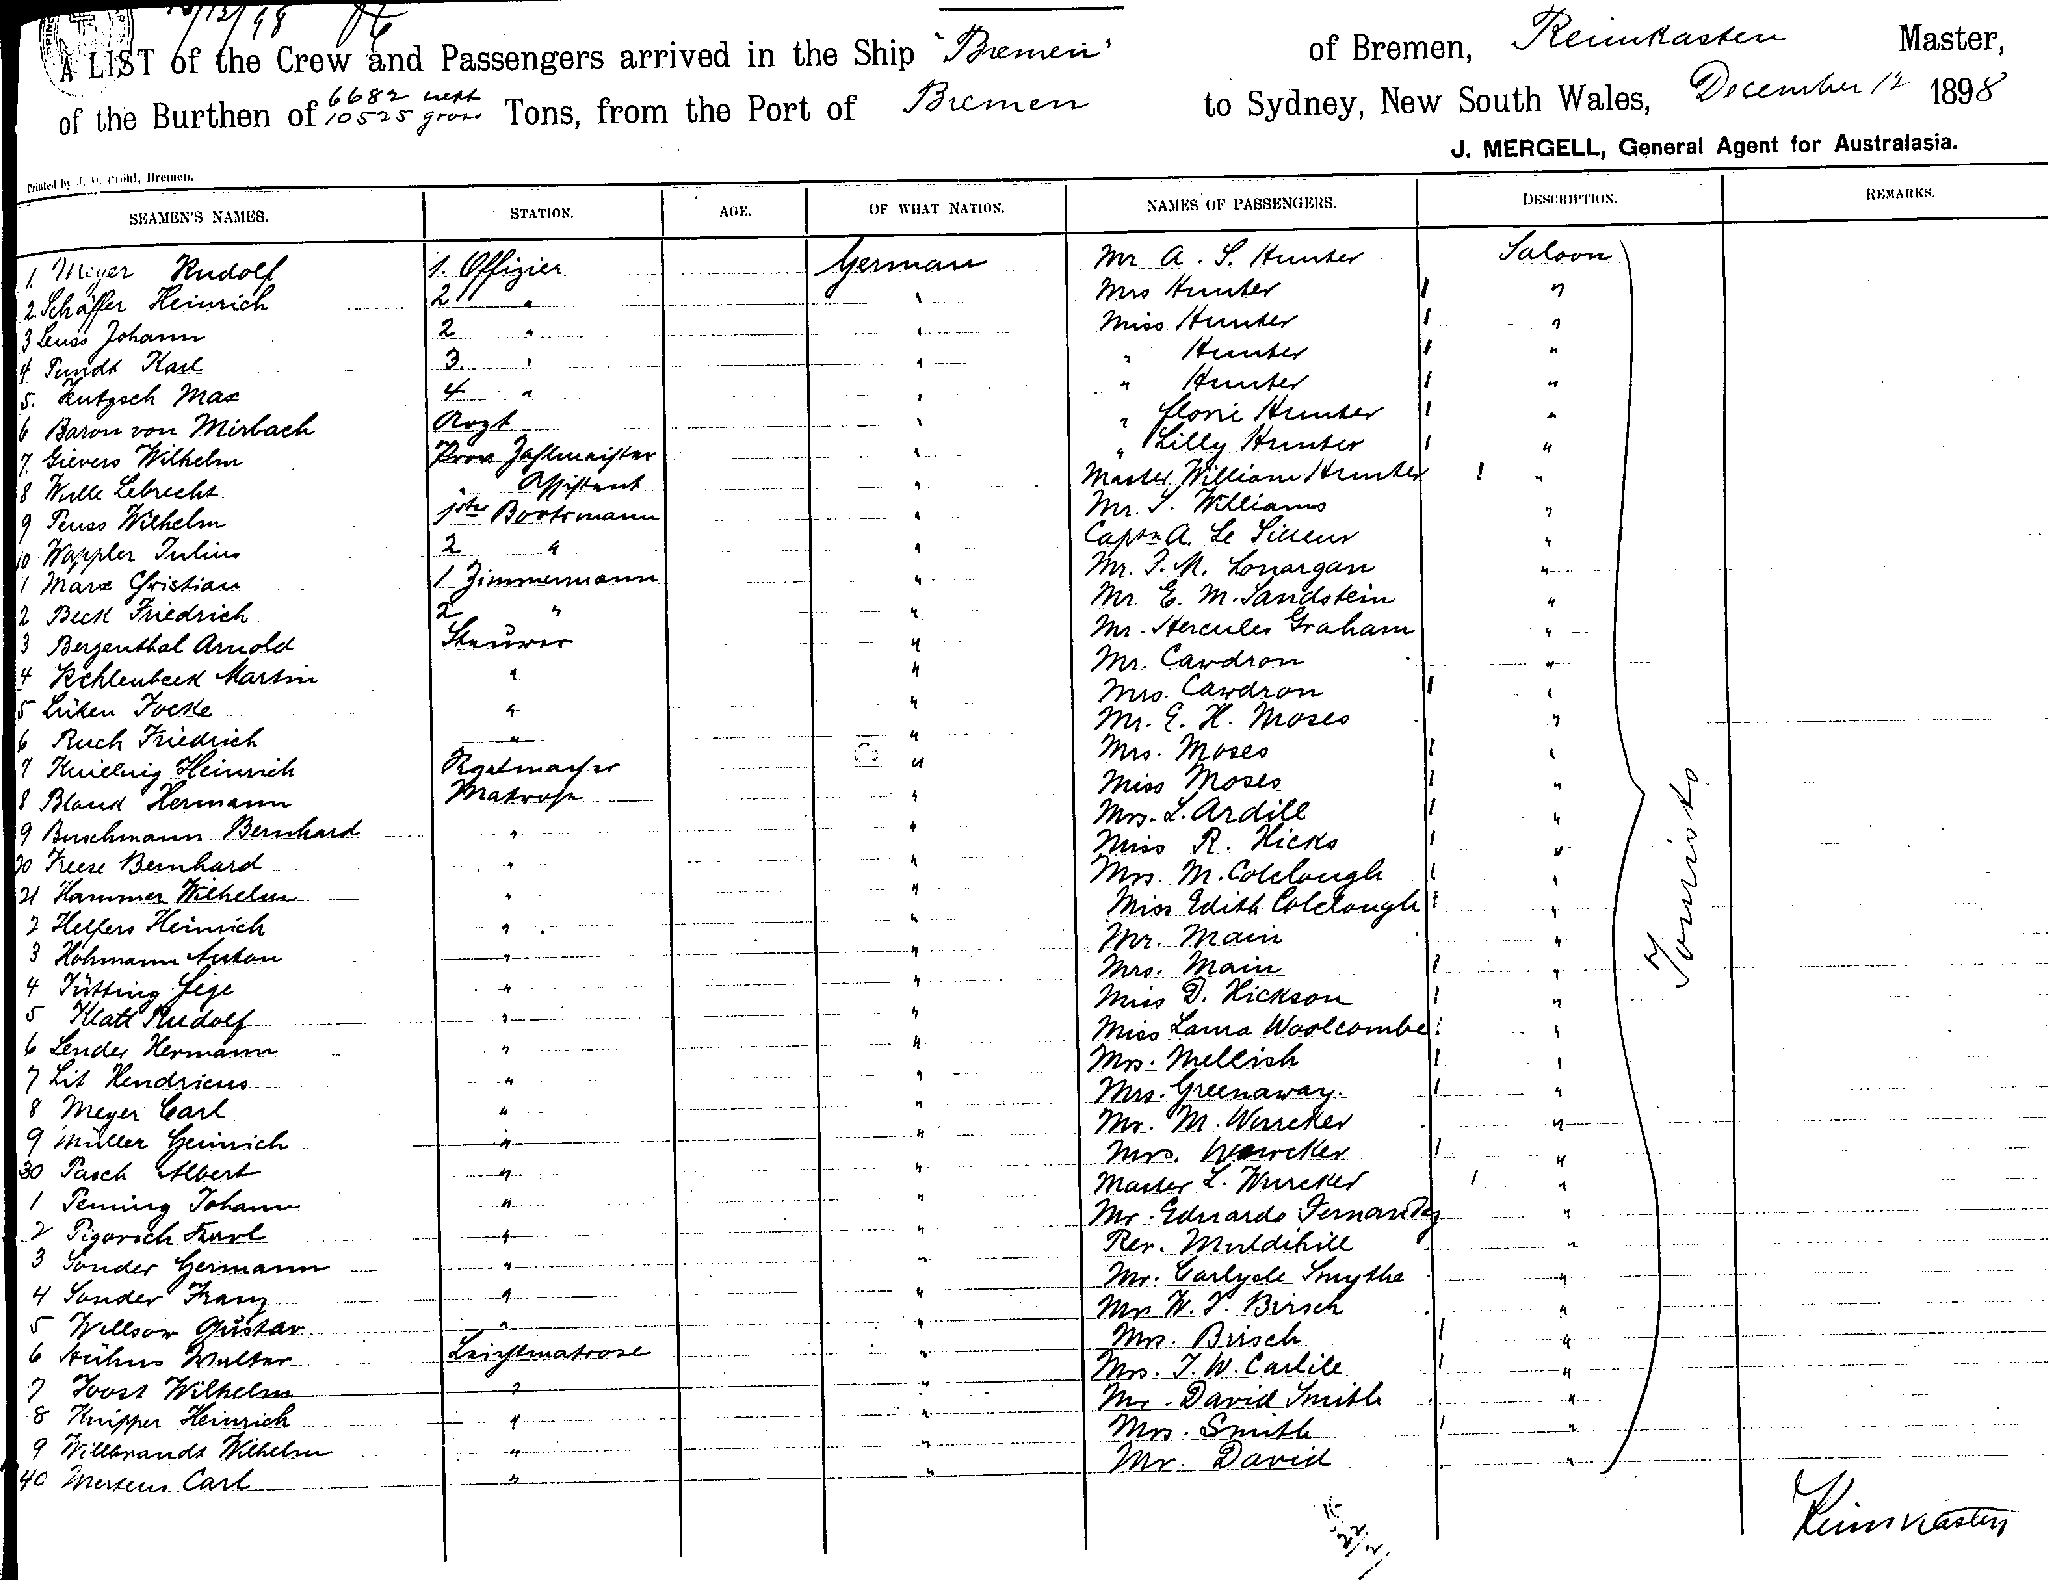 13/12/98
A LIST of the Crew and Passengers arrived in the Ship "Bremen" of Bremen, Reimkasten Master,
of the Burthen of 6682 nett 10525 gross Tons, from the Port of Bremen to Sydney, New South Wales, December 12 1898
J. MERGELL, General Agent for Australasia.
Printed by Bremen.
SEAMEN'S NAMES. STATION. AGE. OF WHAT NATION. NAMES OF PASSENGERS. DESCRIPTION. REMARKS.
1. Meyer Rudolf 1. Offizier German Mr A. S. Hunter Saloon
2 Schäffer Heinrich 2 " " Mrs Hunter "
3 Leuss Johann 2 " " Miss Hunter "
4. Pundt Karl 3. " " " Hunter "
5. Max 4 " " " Hunter "
6 Baron von Mirbach Arzt " " Florie Hunter "
7. Gievers Wilhelm Prov Zahlmeister " " Lilly Hunter "
8 Wille Lebrecht Assistent " Master William Hunter "
9 Peuss Wilhelm 1ster Bootsmann " Mr. S. Williams "
10 Wappler Julius 2 " " Captn A. Le Sueur "
1 Marx Christian 1 Zimmermann " Mr. T. M. Lonargan "
2 Beck Friedrich 2 " " Mr. E. M. Sandstein "
3 Bergenthal Arnold Steurer " Mr. Hercules Graham "
4 Martin " " Mr. Cawdron "
5 Lüken Focke " " Mrs. Cawdron "
6 Ruch Friedrich " " Mr. E. H. Moses "
7 Heinrich " Mrs. Moses "
8 Blank Hermann Matrose " Miss Moses "
9 Buschmann Bernhard " " Mrs. L. Ardill "
20 Freese Bernhard " " Miss R. Hicks "
21 Hammer Wilhelm " " Mrs. M. Colclough "
2 Helfers Heinrich " " Miss Edith Colclough "
3 Hohmann Anton " " Mr. Main "
4 Jütting " " Mrs. Main "
5 Klatt Rudolf " " Miss D. Hickson "
6 Lender Hermann " " Miss Laura Woolcombe "
7 Lit Hendricus " " Mrs. Mellish "
8 Meyer Carl " " Mrs. Greenaway. "
9 Müller Heinrich " " Mr. M. Wercker "
30 Pasch Albert " " Mrs. Wercker "
1 Pening Johann " " Master L. Wercker "
2 Pigorsch Karl " " Mr. Eduardo Fernandez "
3 Sonder Hermann " " Rev. Muldihill "
4 Sonder Franz " " Mr. Carlyle Smythe "
5 Willson Gustav " " Mr. W. J. Birsch "
6 Hühns Walter Leichtmatrose " Mrs. Birsch "
7 Joost Wilhelm " " Mrs. T. W. Carlile "
8 Knipper Heinrich " " Mr. David Smith "
9 Willbrandt Wilhelm " " Mrs. Smith "
40 Mertens Carl " " Mr. David "
Tourists
Reimkasten